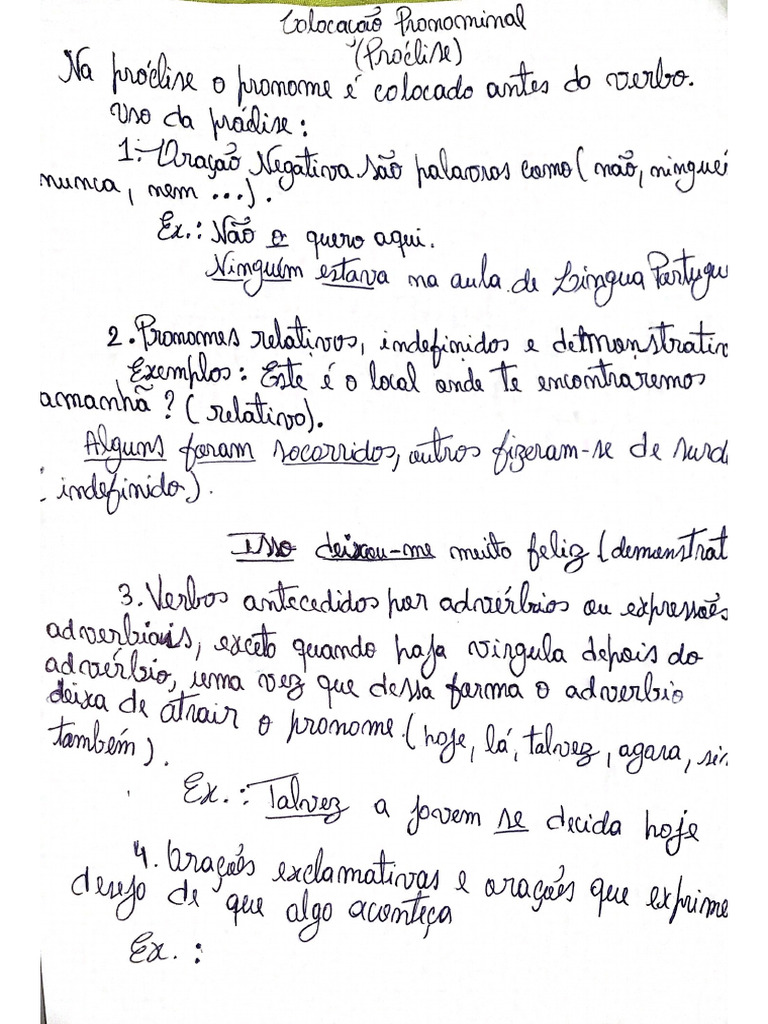 Colocação Pronominal
(Próclise)
Na próclise o pronome é colocado antes do verbo.
Uso da próclise:
1. Oração Negativa são palavras como (não, ningué
nunca, nem ...).
Ex.: Não o quero aqui.
Ninguém estava na aula de Língua Portugu
2. Pronomes relativos, indefinidos e demonstrativ
Exemplos: Este é o local onde te encontraremos
amanhã? (relativo).
Alguns foram socorridos, outros fizeram-se de surd
indefinido).
Isso deixou-me muito feliz (demonstrat
3. Verbos antecedidos por advérbios ou expressões
adverbiais, exceto quando haja vírgula depois do
advérbio, uma vez que dessa forma o adverbio
deixa de atrair o pronome (hoje, lá, talvez, agora,
também).
Ex.: Talvez a jovem se decida hoje
4. Orações exclamativas e orações que exprime
desejo de que algo aconteça
Ex.: